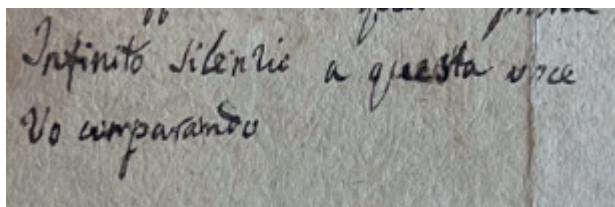 Infinito silenzio a questa voce
Vo comparando